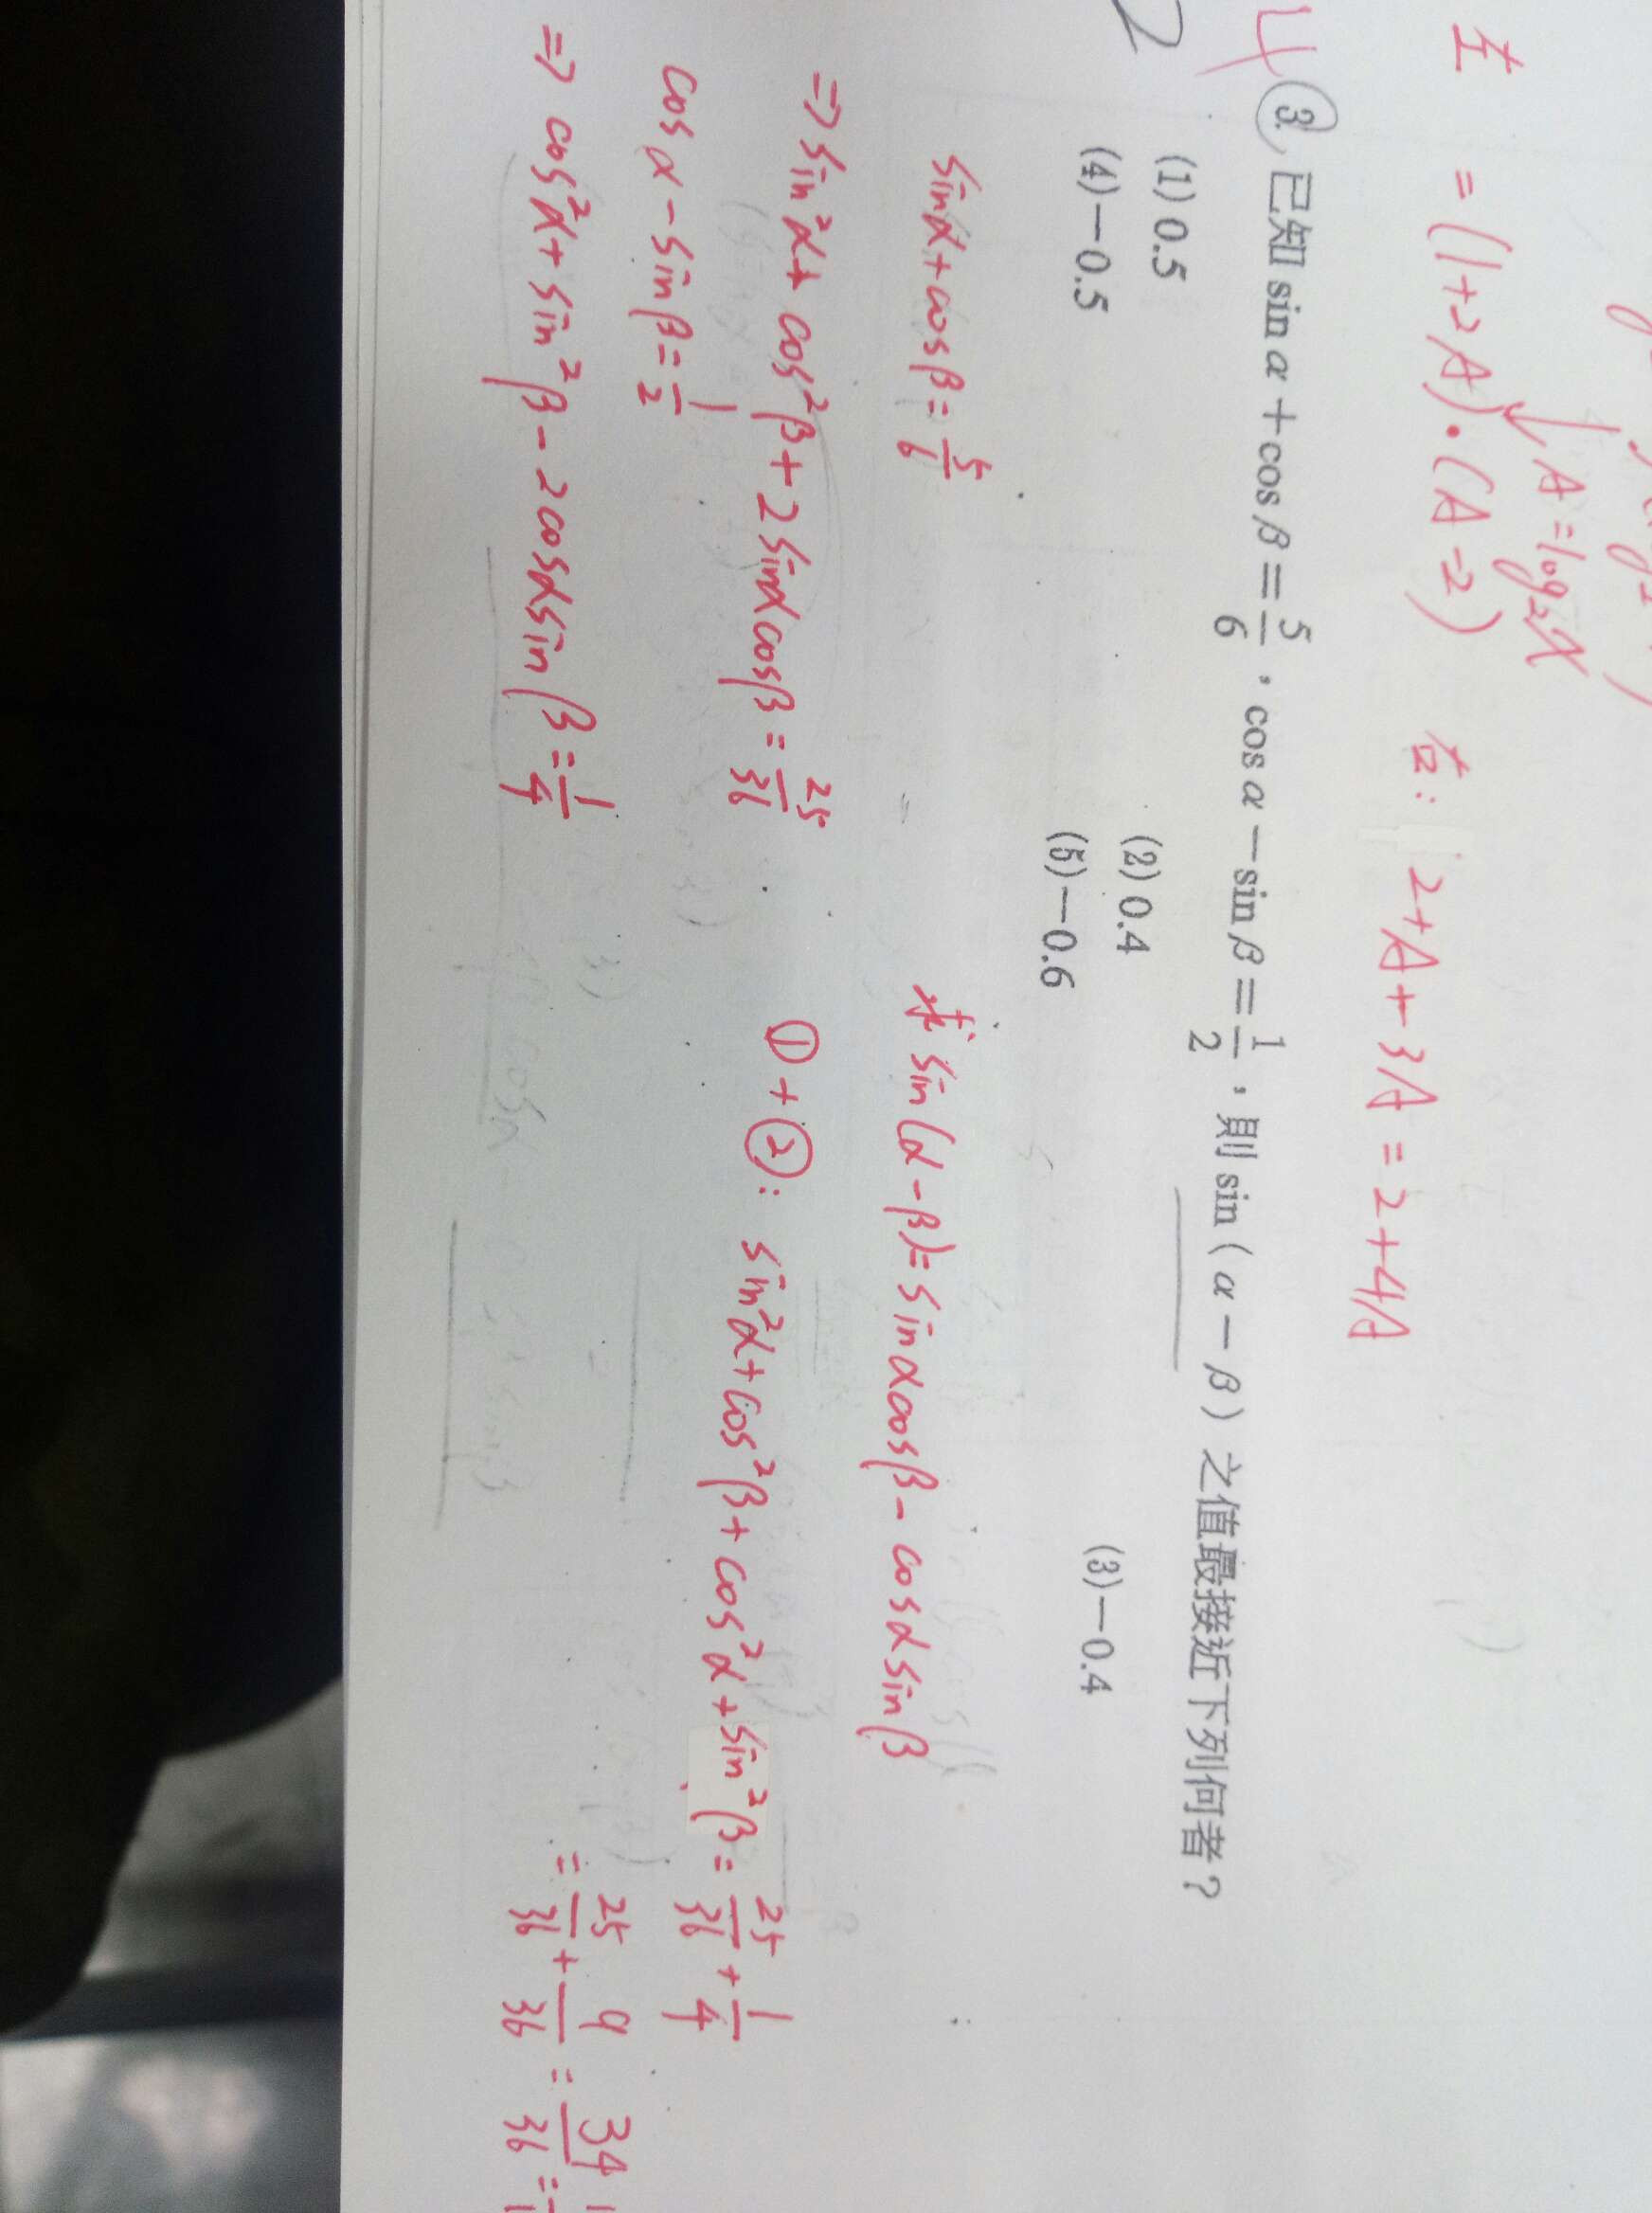 A=log₂x
左 =(1+2A)·(A-2) 右: 2+A+3A=2+4A
4
2
3. 已知 sin α+cos β=5/6,cos α-sin β=1/2,則 sin(α-β)之值最接近下列何者?
(1) 0.5 (2) 0.4 (3)-0.4
(4)-0.5 (5)-0.6
sinα+cosβ=5/6 求 sin(α-β)=sinαcosβ-cosαsinβ
⇒ sin²α+cos²β+2sinαcosβ=25/36 ①+②: sin²α+cos²β+cos²α+sin²β=25/36+1/4
cosα-sinβ=1/2
⇒ cos²α+sin²β-2cosαsinβ=1/4 =25/36+9/36=34/36=